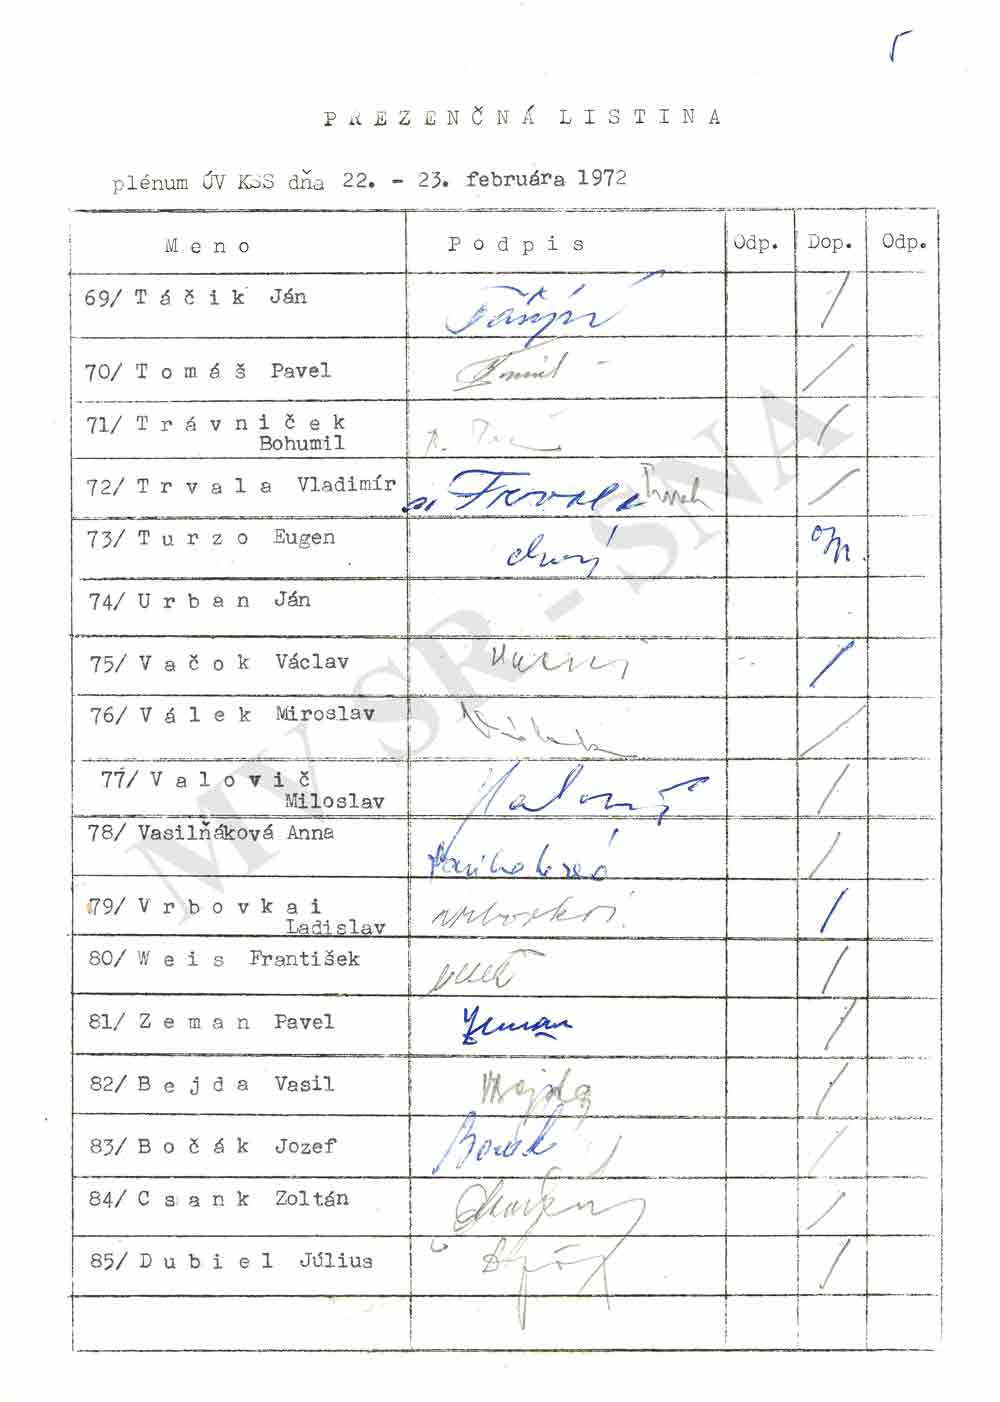 5
PREZENČNÁ LISTINA
plénum ÚV KSS dňa 22. - 23. februára 1972
Meno Podpis Odp. Dop. Odp.
69/ Táčik Ján
70/ Tomáš Pavel
71/ Trávniček
Bohumil
72/ Trvala Vladimír Trvala
73/ Turzo Eugen
74/ Urban Ján
75/ Vačok Václav
76/ Válek Miroslav Válek
77/ Valovič
Miloslav
78/ Vasilňáková Anna
79/ Vrbovkai
Ladislav
80/ Weis František
81/ Zeman Pavel Zeman
82/ Bejda Vasil
83/ Bočák Jozef
84/ Csank Zoltán
85/ Dubiel Július
MV SR - SNA